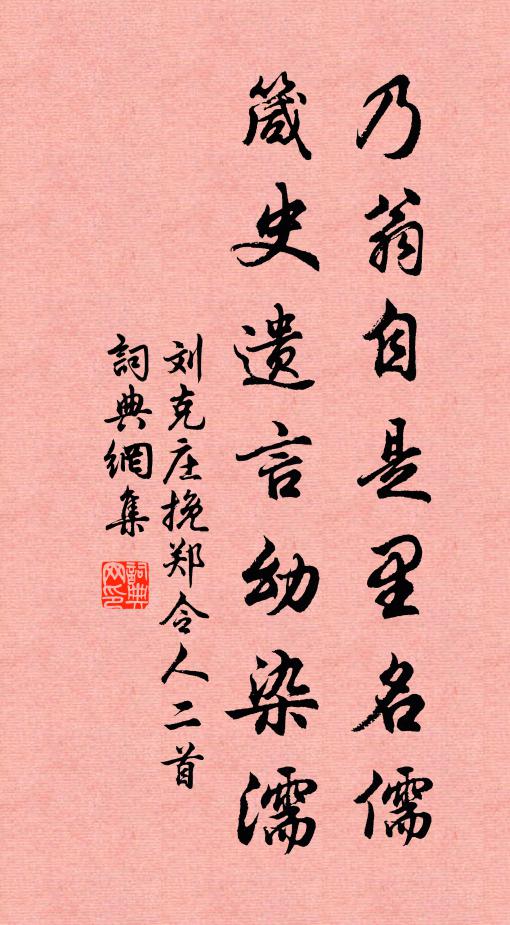 乃翁自是里名儒
箴史遗言幼染濡
刘克庄挽郑令人二首
詞典網集
詞典网印